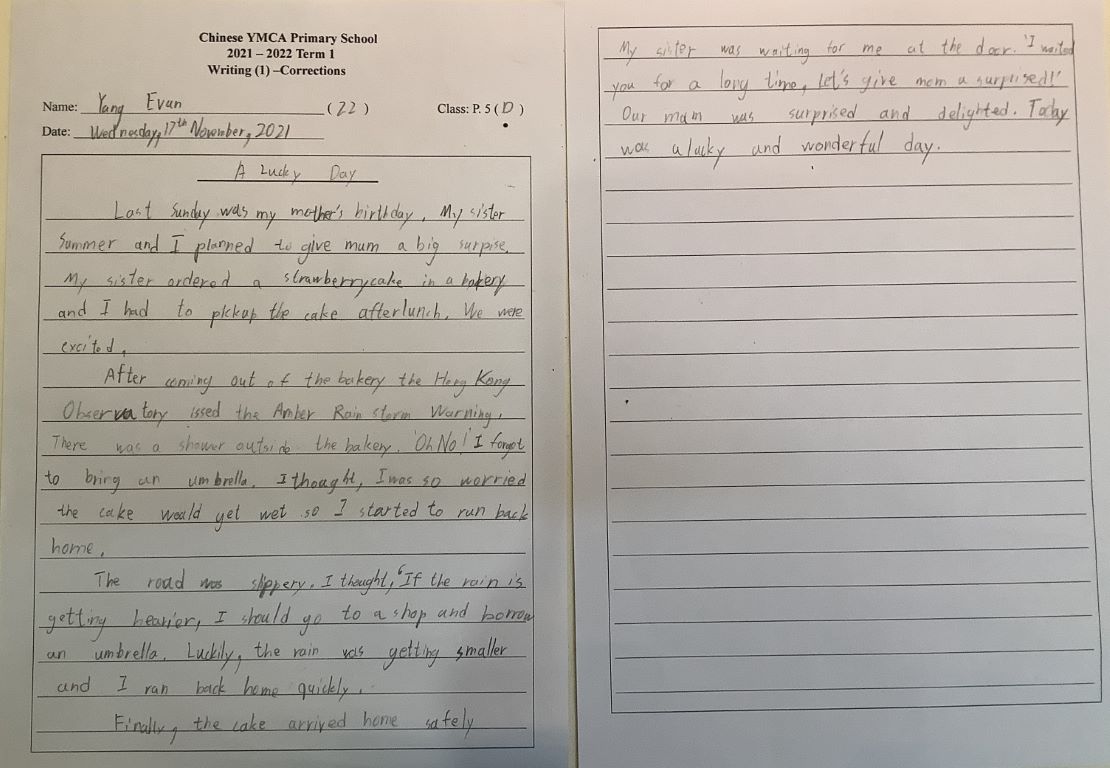 Chinese YMCA Primary School
2021 – 2022 Term 1
Writing (1) –Corrections
Name: Yang Evan (22) Class: P. 5 (D)
Date: Wednesday, 17th November, 2021
A Lucky Day
Last Sunday was my mother's birthday. My sister
Summer and I planned to give mum a big surpise.
My sister ordered a strawberry cake in a bakery
and I had to pickup the cake after lunch. We were
excited.
After coming out of the bakery the Hong Kong
Observatory issed the Amber Rain storm Warning.
There was a shower outside the bakery. 'Oh No! I forgot
to bring an umbrella. I thought, I was so worried
the cake would get wet so I started to run back
home.
The road was slippery. I thought, 'If the rain is
getting heavier, I should go to a shop and borrow
an umbrella. Luckily, the rain was getting smaller
and I ran back home quickly.
Finally, the cake arrived home safely
My sister was waiting for me at the door. 'I waited
you for a long time, Let's give mom a surprised!'
Our mum was surprised and delighted. Today
was a lucky and wonderful day.